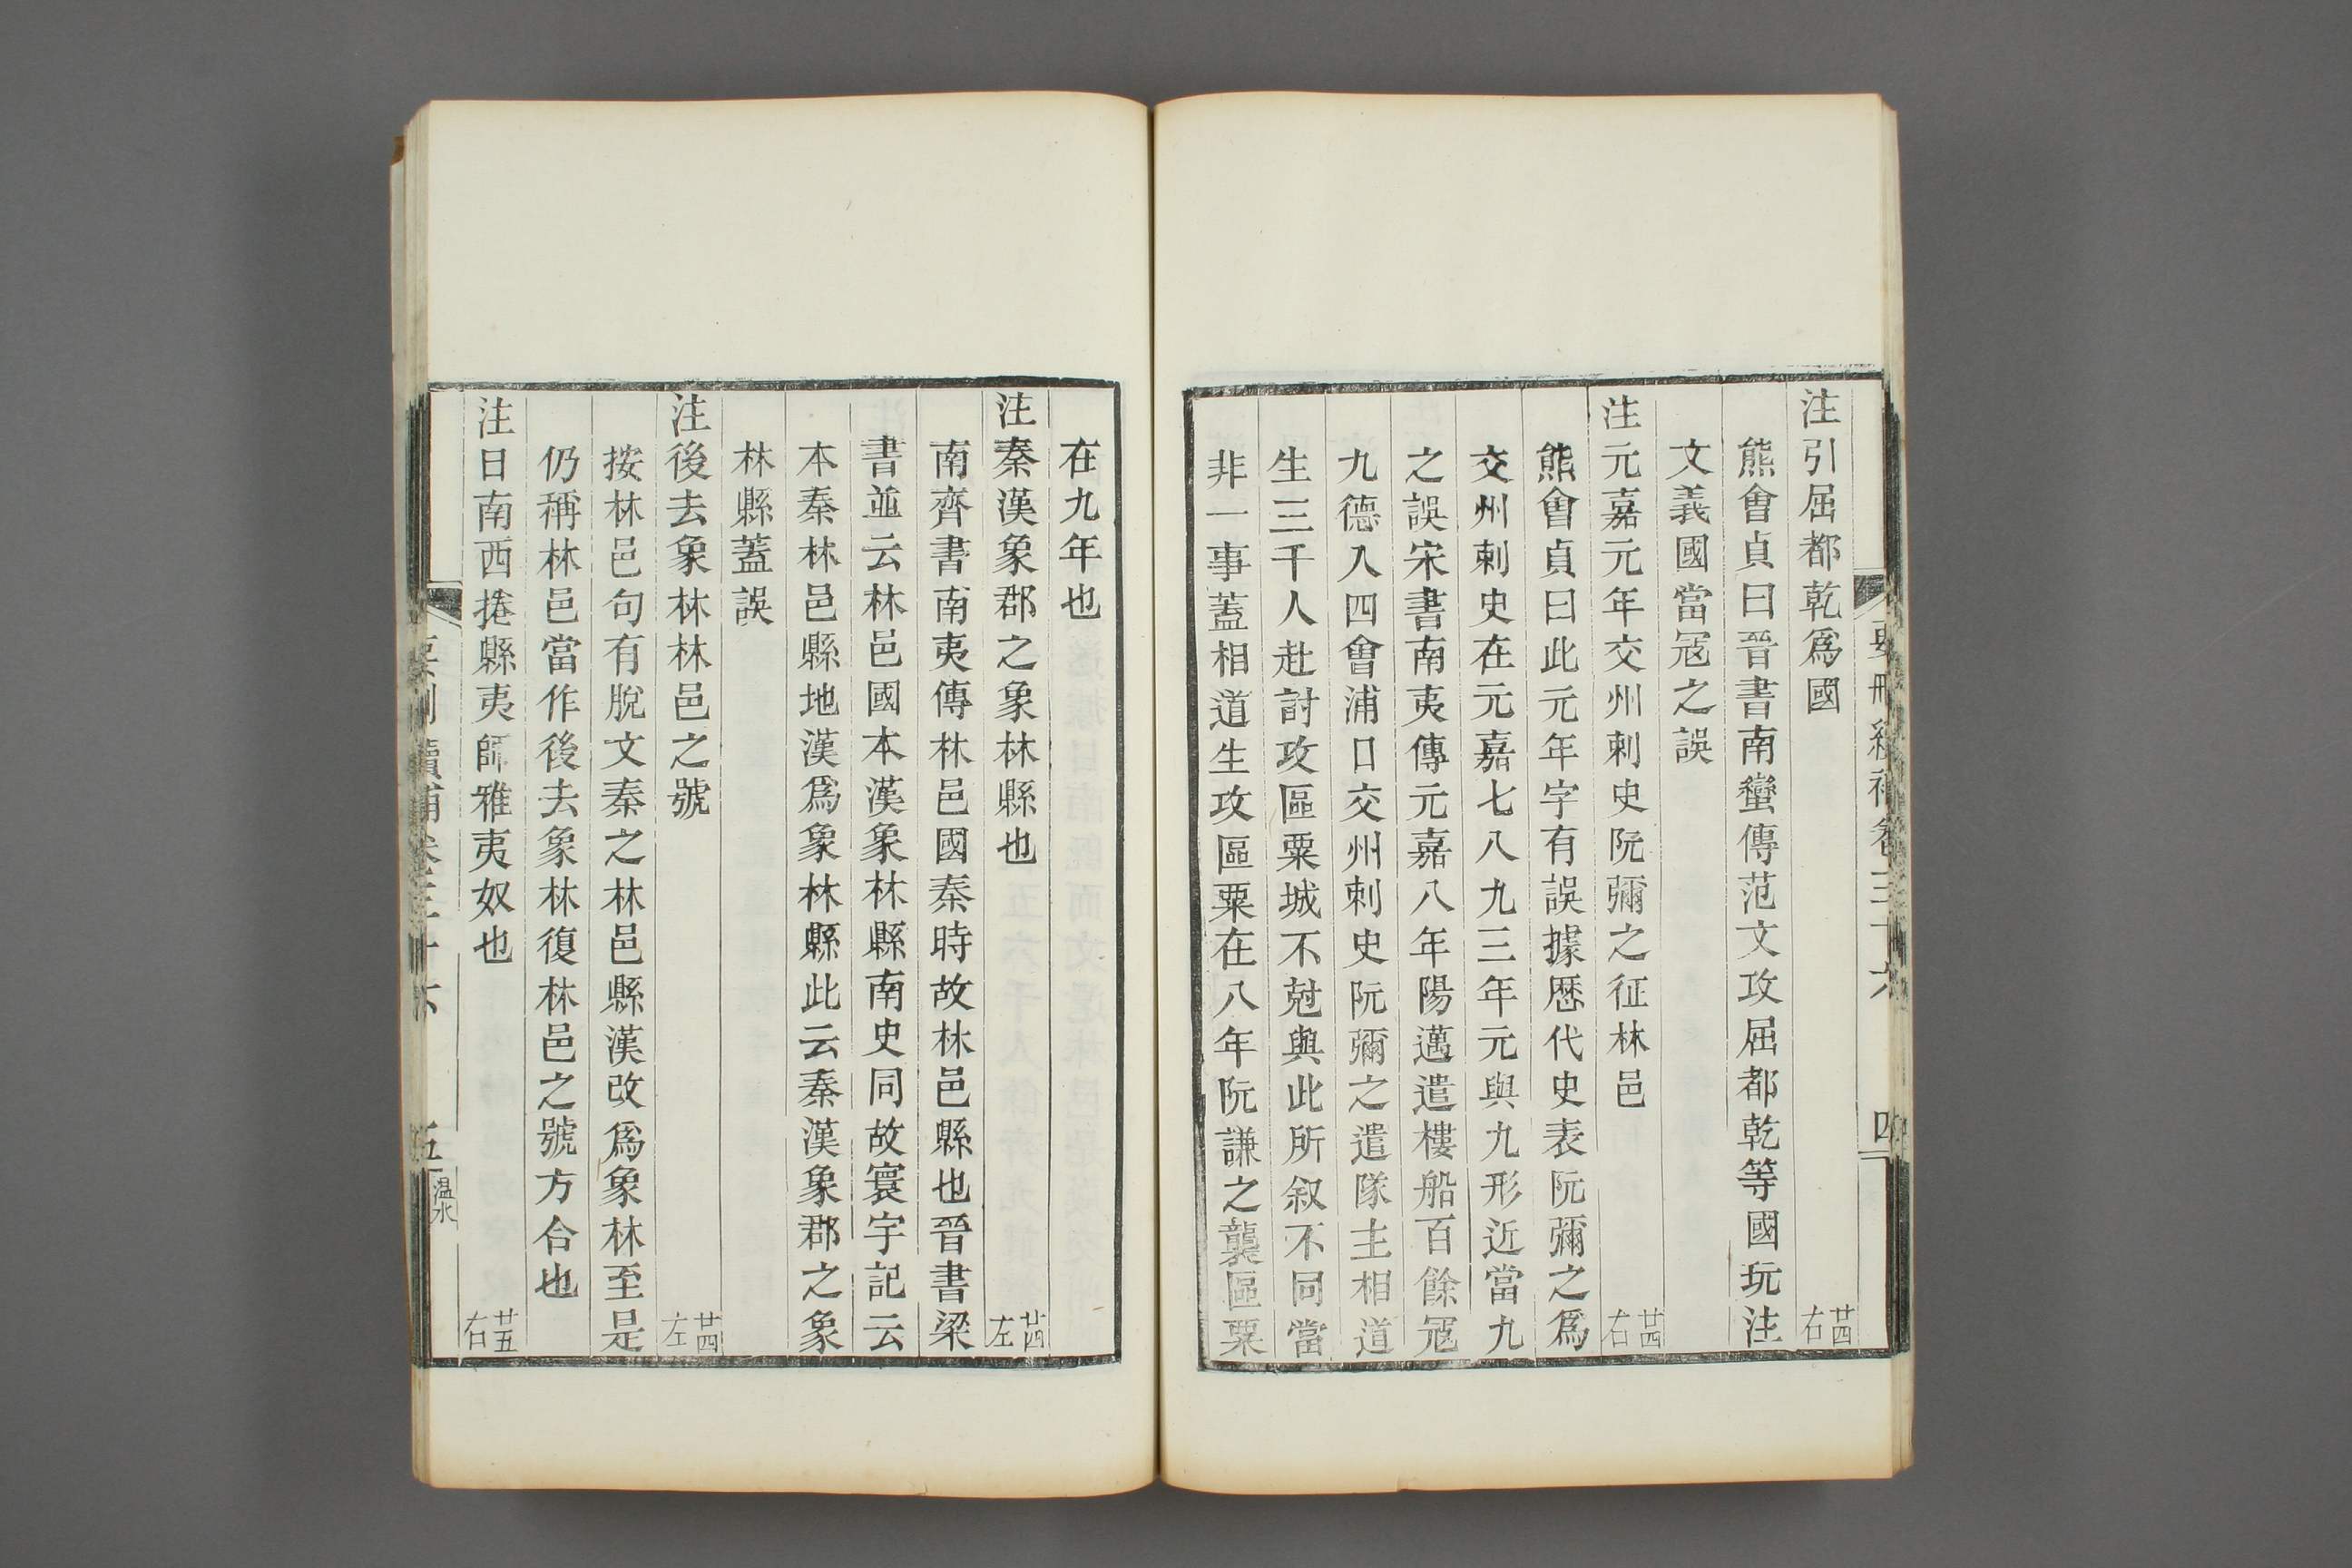 注引屈都乾爲國 廿四右
熊會貞曰晉書南蠻傳范文攻屈都乾等國玩注
文義國當冦之誤
注元嘉元年交州刺史阮彌之征林邑 廿四右
熊會貞曰此元年字有誤據歷代史表阮彌之爲
交州刺史在元嘉七八九三年元與九形近當九
之誤宋書南夷傳元嘉八年陽邁遣樓船百餘冦
九德入四會浦口交州刺史阮彌之遣隊主相道
生三千人赴討攻區粟城不尅與此所叙不同當
非一事蓋相道生攻區粟在八年阮謙之襲區粟
要刪續補卷三十六 四
在九年也
注秦漢象郡之象林縣也 廿四左
南齊書南夷傳林邑國秦時故林邑縣也晉書梁
書並云林邑國本漢象林縣南史同故寰宇記云
本秦林邑縣地漢爲象林縣此云秦漢象郡之象
林縣蓋誤
注後去象林林邑之號 廿四左
按林邑句有脫文秦之林邑縣漢改爲象林至是
仍稱林邑當作後去象林復林邑之號方合也
注日南西捲縣夷師雅夷奴也 廿五右
要刪續補卷三十六 五 温水